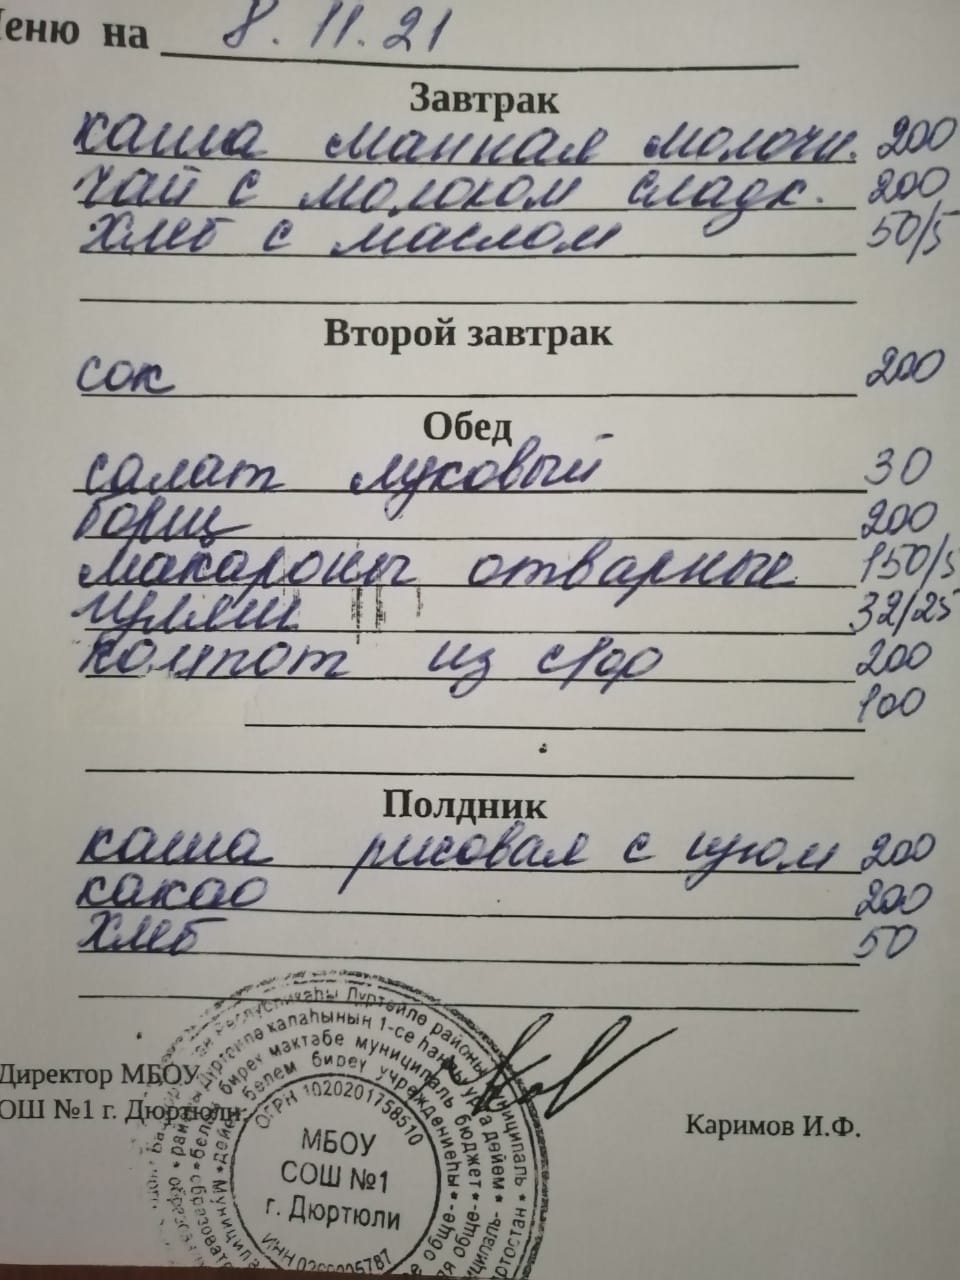 Меню на 8.11.21
Завтрак
каша манная молочн. 200
чай с молоком сладк. 200
хлеб с маслом 50/5
Второй завтрак
сок 200
Обед
салат луковый 30
борщ 200
макароны отварные 150/5
гуляш 32/25
компот из с/фр 200
100
Полдник
каша рисовая с изюм 200
какао 200
хлеб 50
Директор МБОУ
ОШ №1 г. Дюртюли:
Каримов И.Ф.
ОГРН 1020201758510
МБОУ
СОШ №1
г. Дюртюли